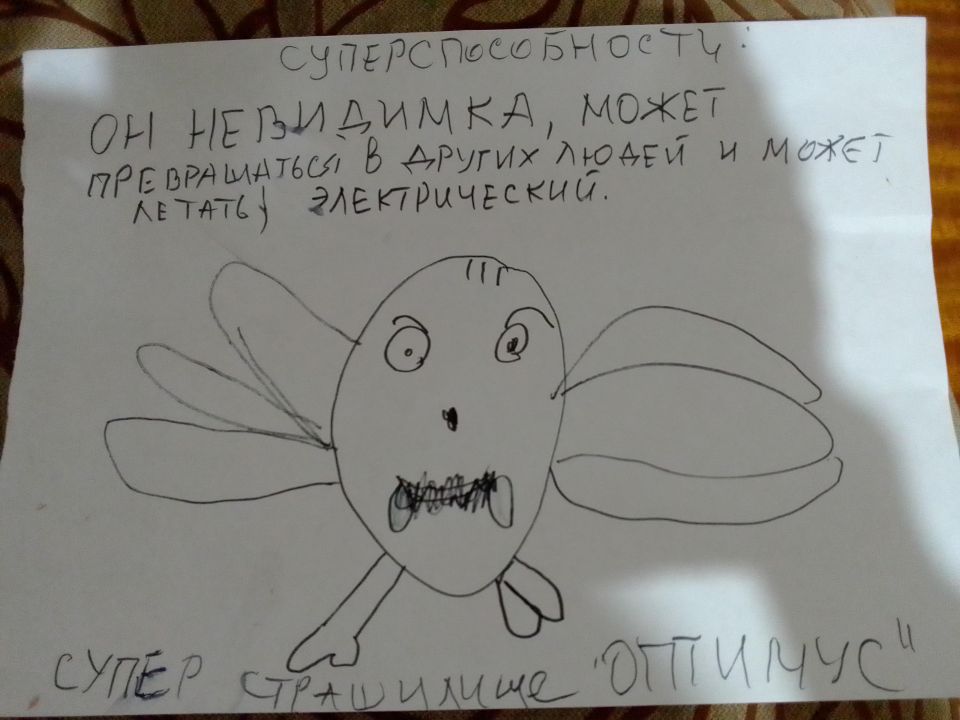 СУПЕРСПОСОБНОСТИ:
ОН НЕВИДИМКА, МОЖЕТ
ПРЕВРАЩАТЬСЯ В ДРУГИХ ЛЮДЕЙ И МОЖЕТ
ЛЕТАТЬ, ЭЛЕКТРИЧЕСКИЙ.
СУПЕР СТРАШИЛИЩЕ "ОПТИМУС"